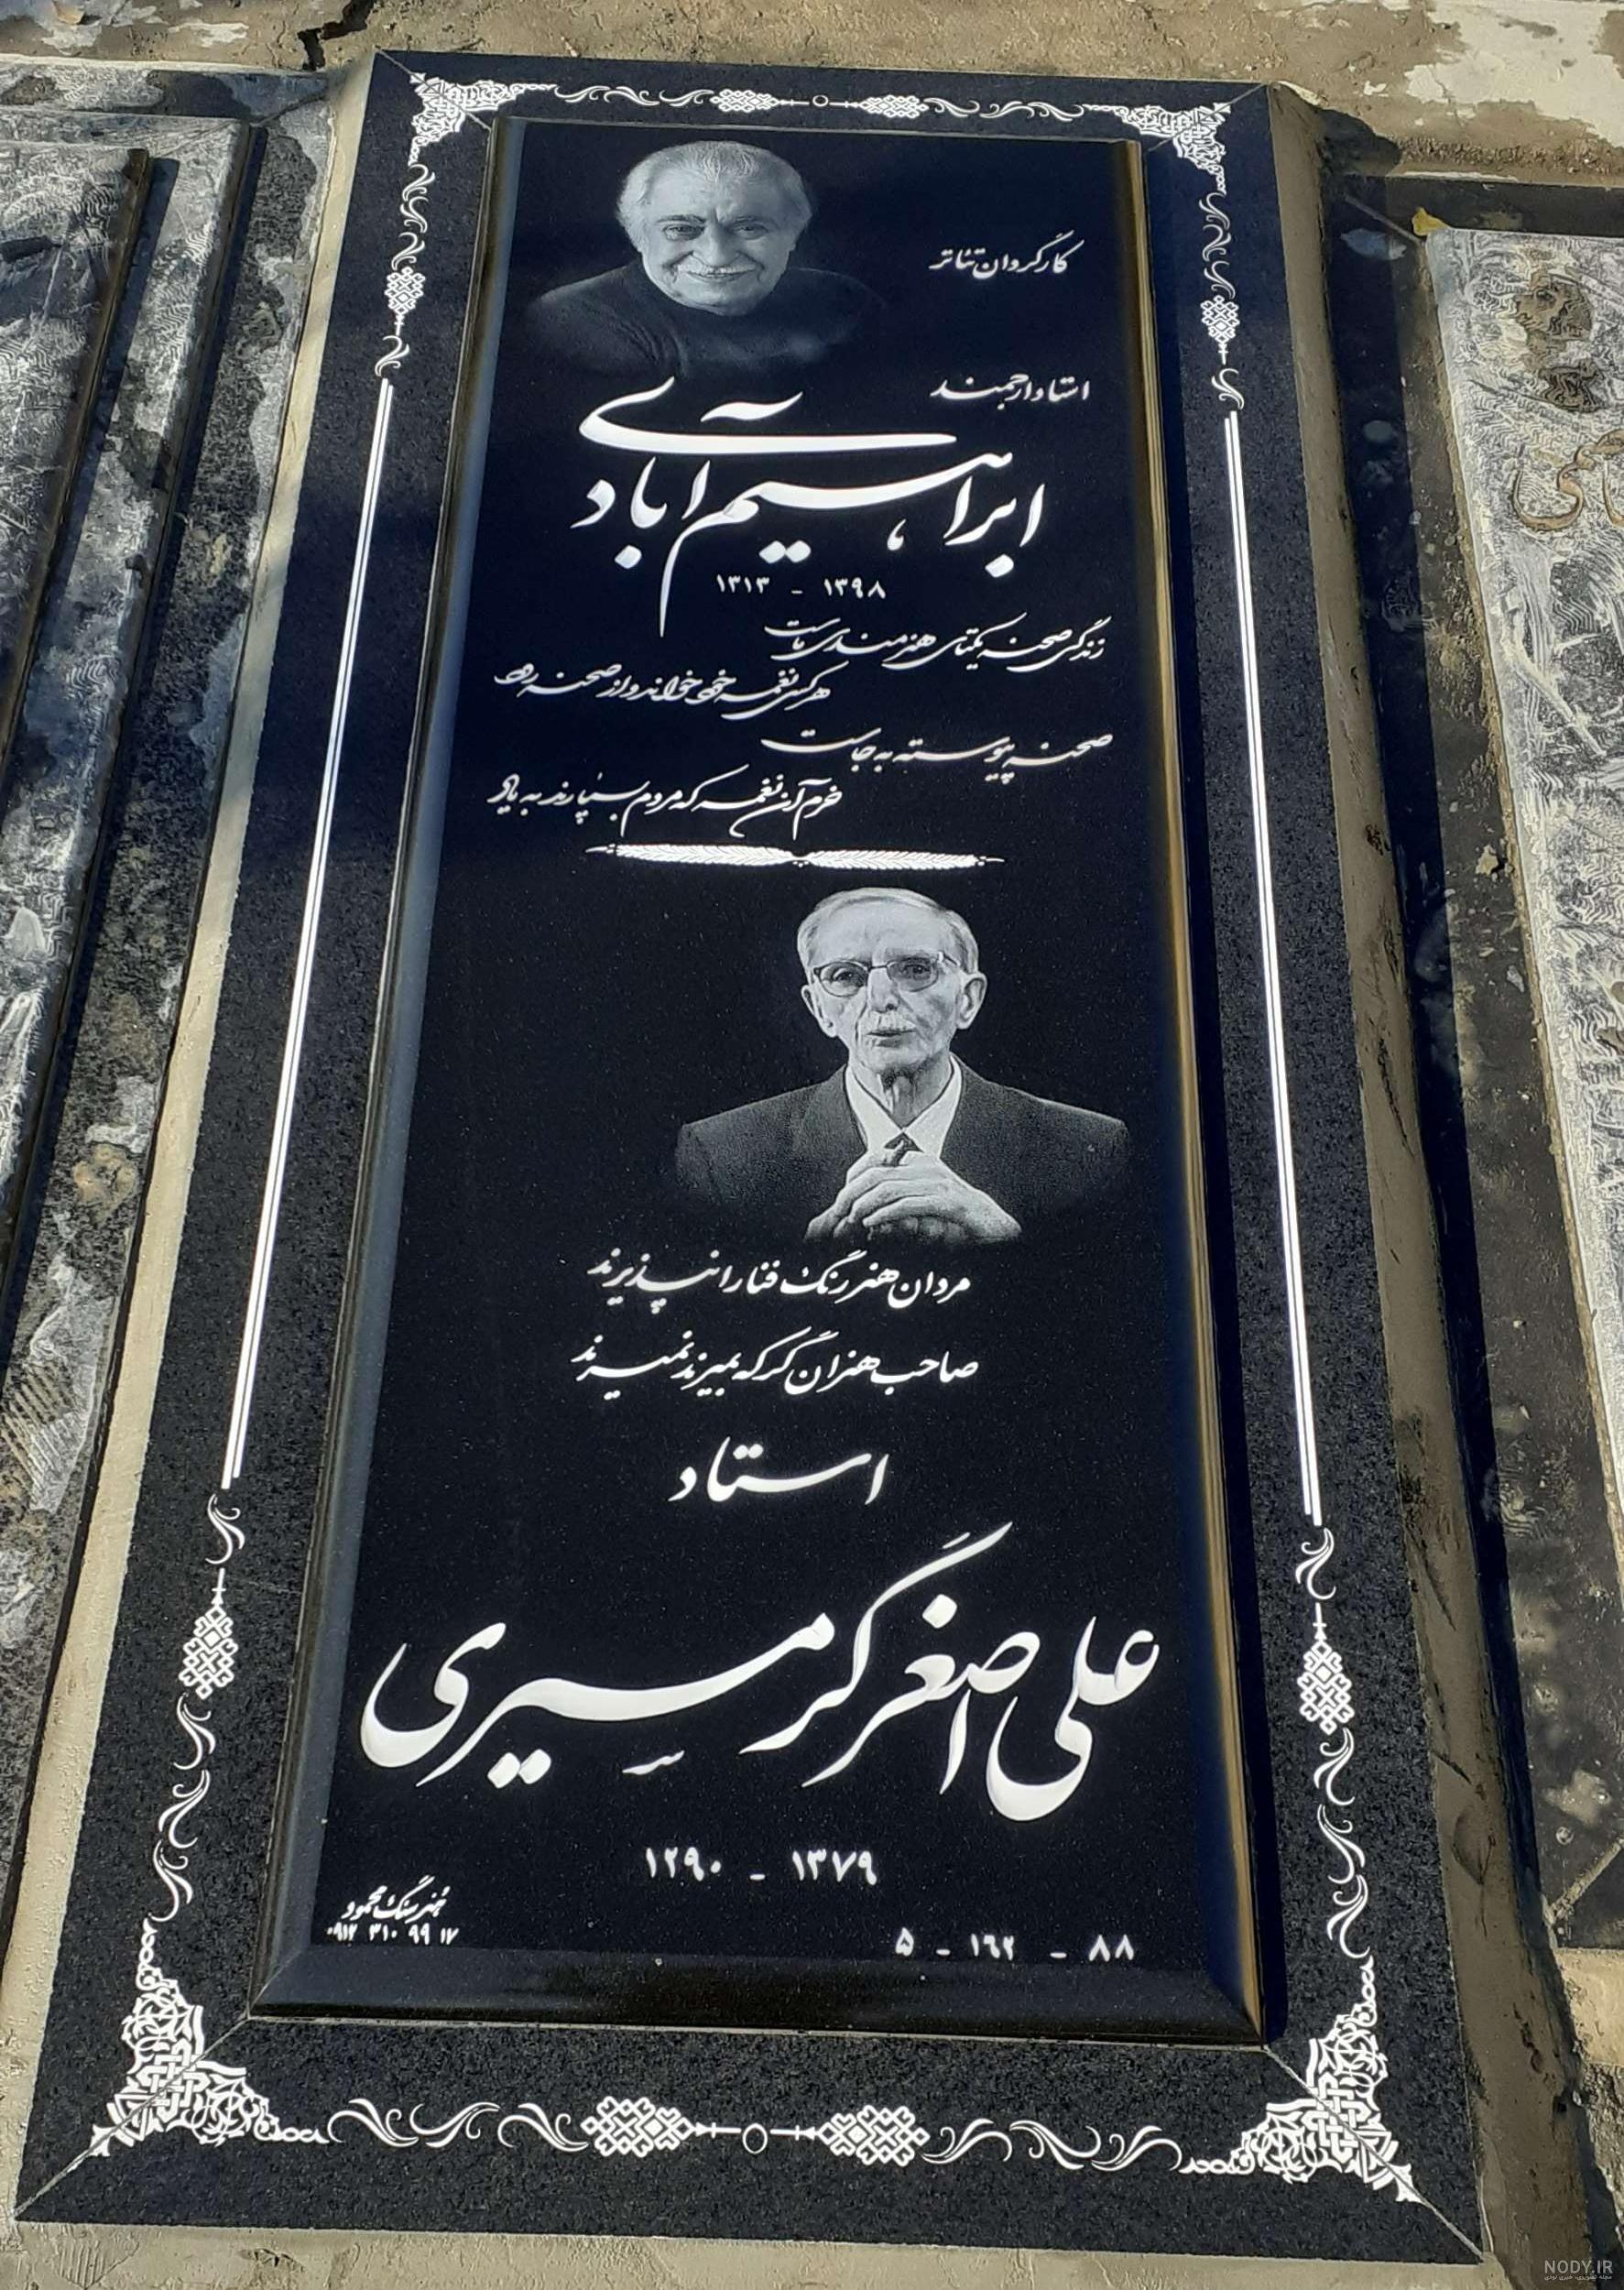 کارگردان تئاتر
استاد ارجمند
ابراهیم آبادی
۱۳۱۳ - ۱۳۹۸
زندگی صحنه یکتای هنرمندی ماست
هر کسی نغمه خود خواند و از صحنه رود
صحنه پیوسته به جاست
خرم آن نغمه که مردم بسپارند به یاد
مردان هنر رنگ فنا را نپذیرند
صاحب هنران گر که بمیرند نمیرند
استاد
علی اصغر گرمسیری
۱۲۹۰ - ۱۳۷۹
هنر سنگ محمود
۰۹۱۲ ۳۱۰ ۹۹ ۱۷
۵ - ۱۶۲ - ۸۸
NODY.IR